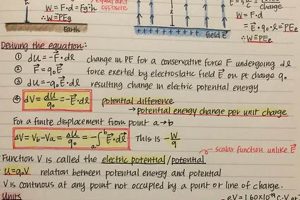 W = F·d
= Fg·h
∴ W = PEg
Earth
equal and opposite
field E⃗
W = F·d
= E⃗·q₀·d
∴ W = PEe
Deriving the equation:
① dU = -F⃗·dℓ⃗ change in PE for a conservative force F⃗ undergoing dℓ⃗
② F⃗ = q₀E⃗ force exerted by electrostatic field E⃗ on pt charge q₀
③ dU = -q₀E⃗·dℓ⃗ resulting change in electric potential energy
④ dV = dU/q₀ = -E⃗·dℓ⃗ potential difference
→ potential energy change per unit charge
for a finite displacement from point a → b
ΔV = Vb - Va = ΔU/q₀ = -∫ᵃᵇ E⃗·dℓ⃗ This is -W/q
→ scalar function unlike E⃗
Function V is called the electric potential / potential
U = q₀V relation between potential energy and potential
V is continous at any point not occupied by a point or line of charge.
Units
eV = 1.60×10⁻¹⁹ C·V